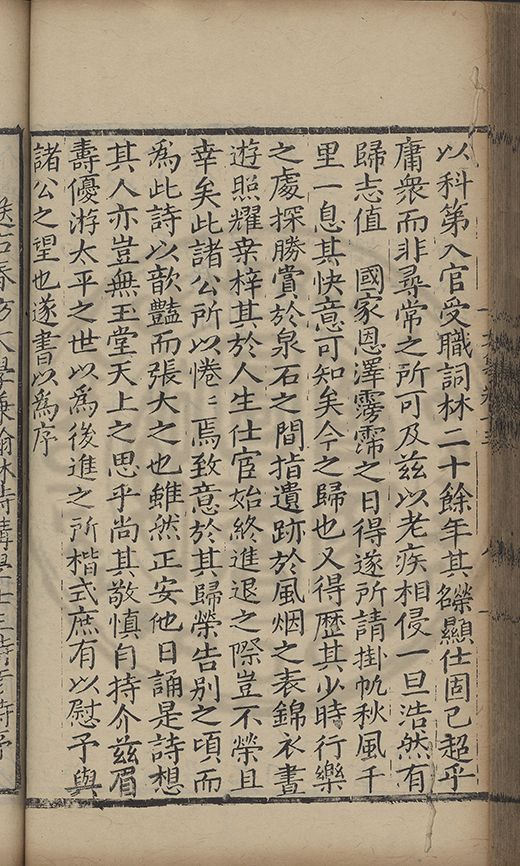 以科第入官受職詞林二十餘年其榮顯仕固已超乎
庸衆而非尋常之所可及兹以老疾相侵一旦浩然有
歸志值　國家恩澤霶霈之日得遂所請掛帆秋風千
里一息其快意可知矣今之歸也又得歷其少時行樂
之處探勝賞於泉石之間指遺跡於風烟之表錦衣晝
遊照耀桒梓其於人生仕宦始終進退之際豈不榮且
幸矣此諸公所以惓〻焉致意於其歸榮告别之頃而
爲此詩以歆豔而張大之也雖然正安他日誦是詩想
其人亦豈無玉堂天上之思乎尚其敬慎自持介兹眉
壽優游太平之世以爲後進之所楷式庶有以慰予與
諸公之望也遂書以爲序